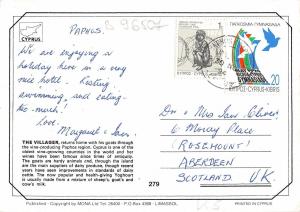 CYPRUS
PAPHOS.
S 96507
We are enjoying a
holiday here in a very
nice hotel - Resting
swimming and eating
too much!
Love,
Margaret & Ian.
ΠΑΓΚΟΣΜΙΑ ΓΥΜΝΑΣΙΑΔΑ
20
ΚΥΠΡΟΣ-CYPRUS-KIBRIS
1
Dr & Mrs Ian Oliver
6 Moray Place
(ROSEMOUNT)
ABERDEEN
SCOTLAND U.K.
THE VILLAGER, returns home with his goats through
the vine-producing Paphos region. Cyprus is one of the
oldest vine-growing countries in the world and her
wines have been famous since times of antiquity.
Goats are hardy animals and, though not classed as
dairy cows, they do provide plenty of milk. Recent
years have seen improvements in standards of dairy
hygiene. The now popular and health-giving Yoghourt
is usually made from a mixture of sheep's, goat's and
cow's milk.
279
Copyright by MONA Ltd Tel. 26400 - P.O Box 4368 - LIMASSOL
PRINTED IN CYPRUS